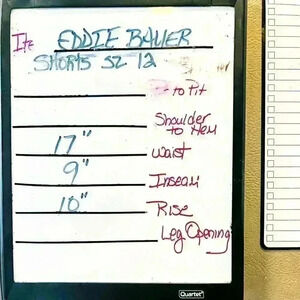 Ite EDDIE BAUER
SHORTS SZ 12
to Pit
Shoulder to Hem
17" Waist
9" Inseam
10" Rise
Leg Opening
Quartet